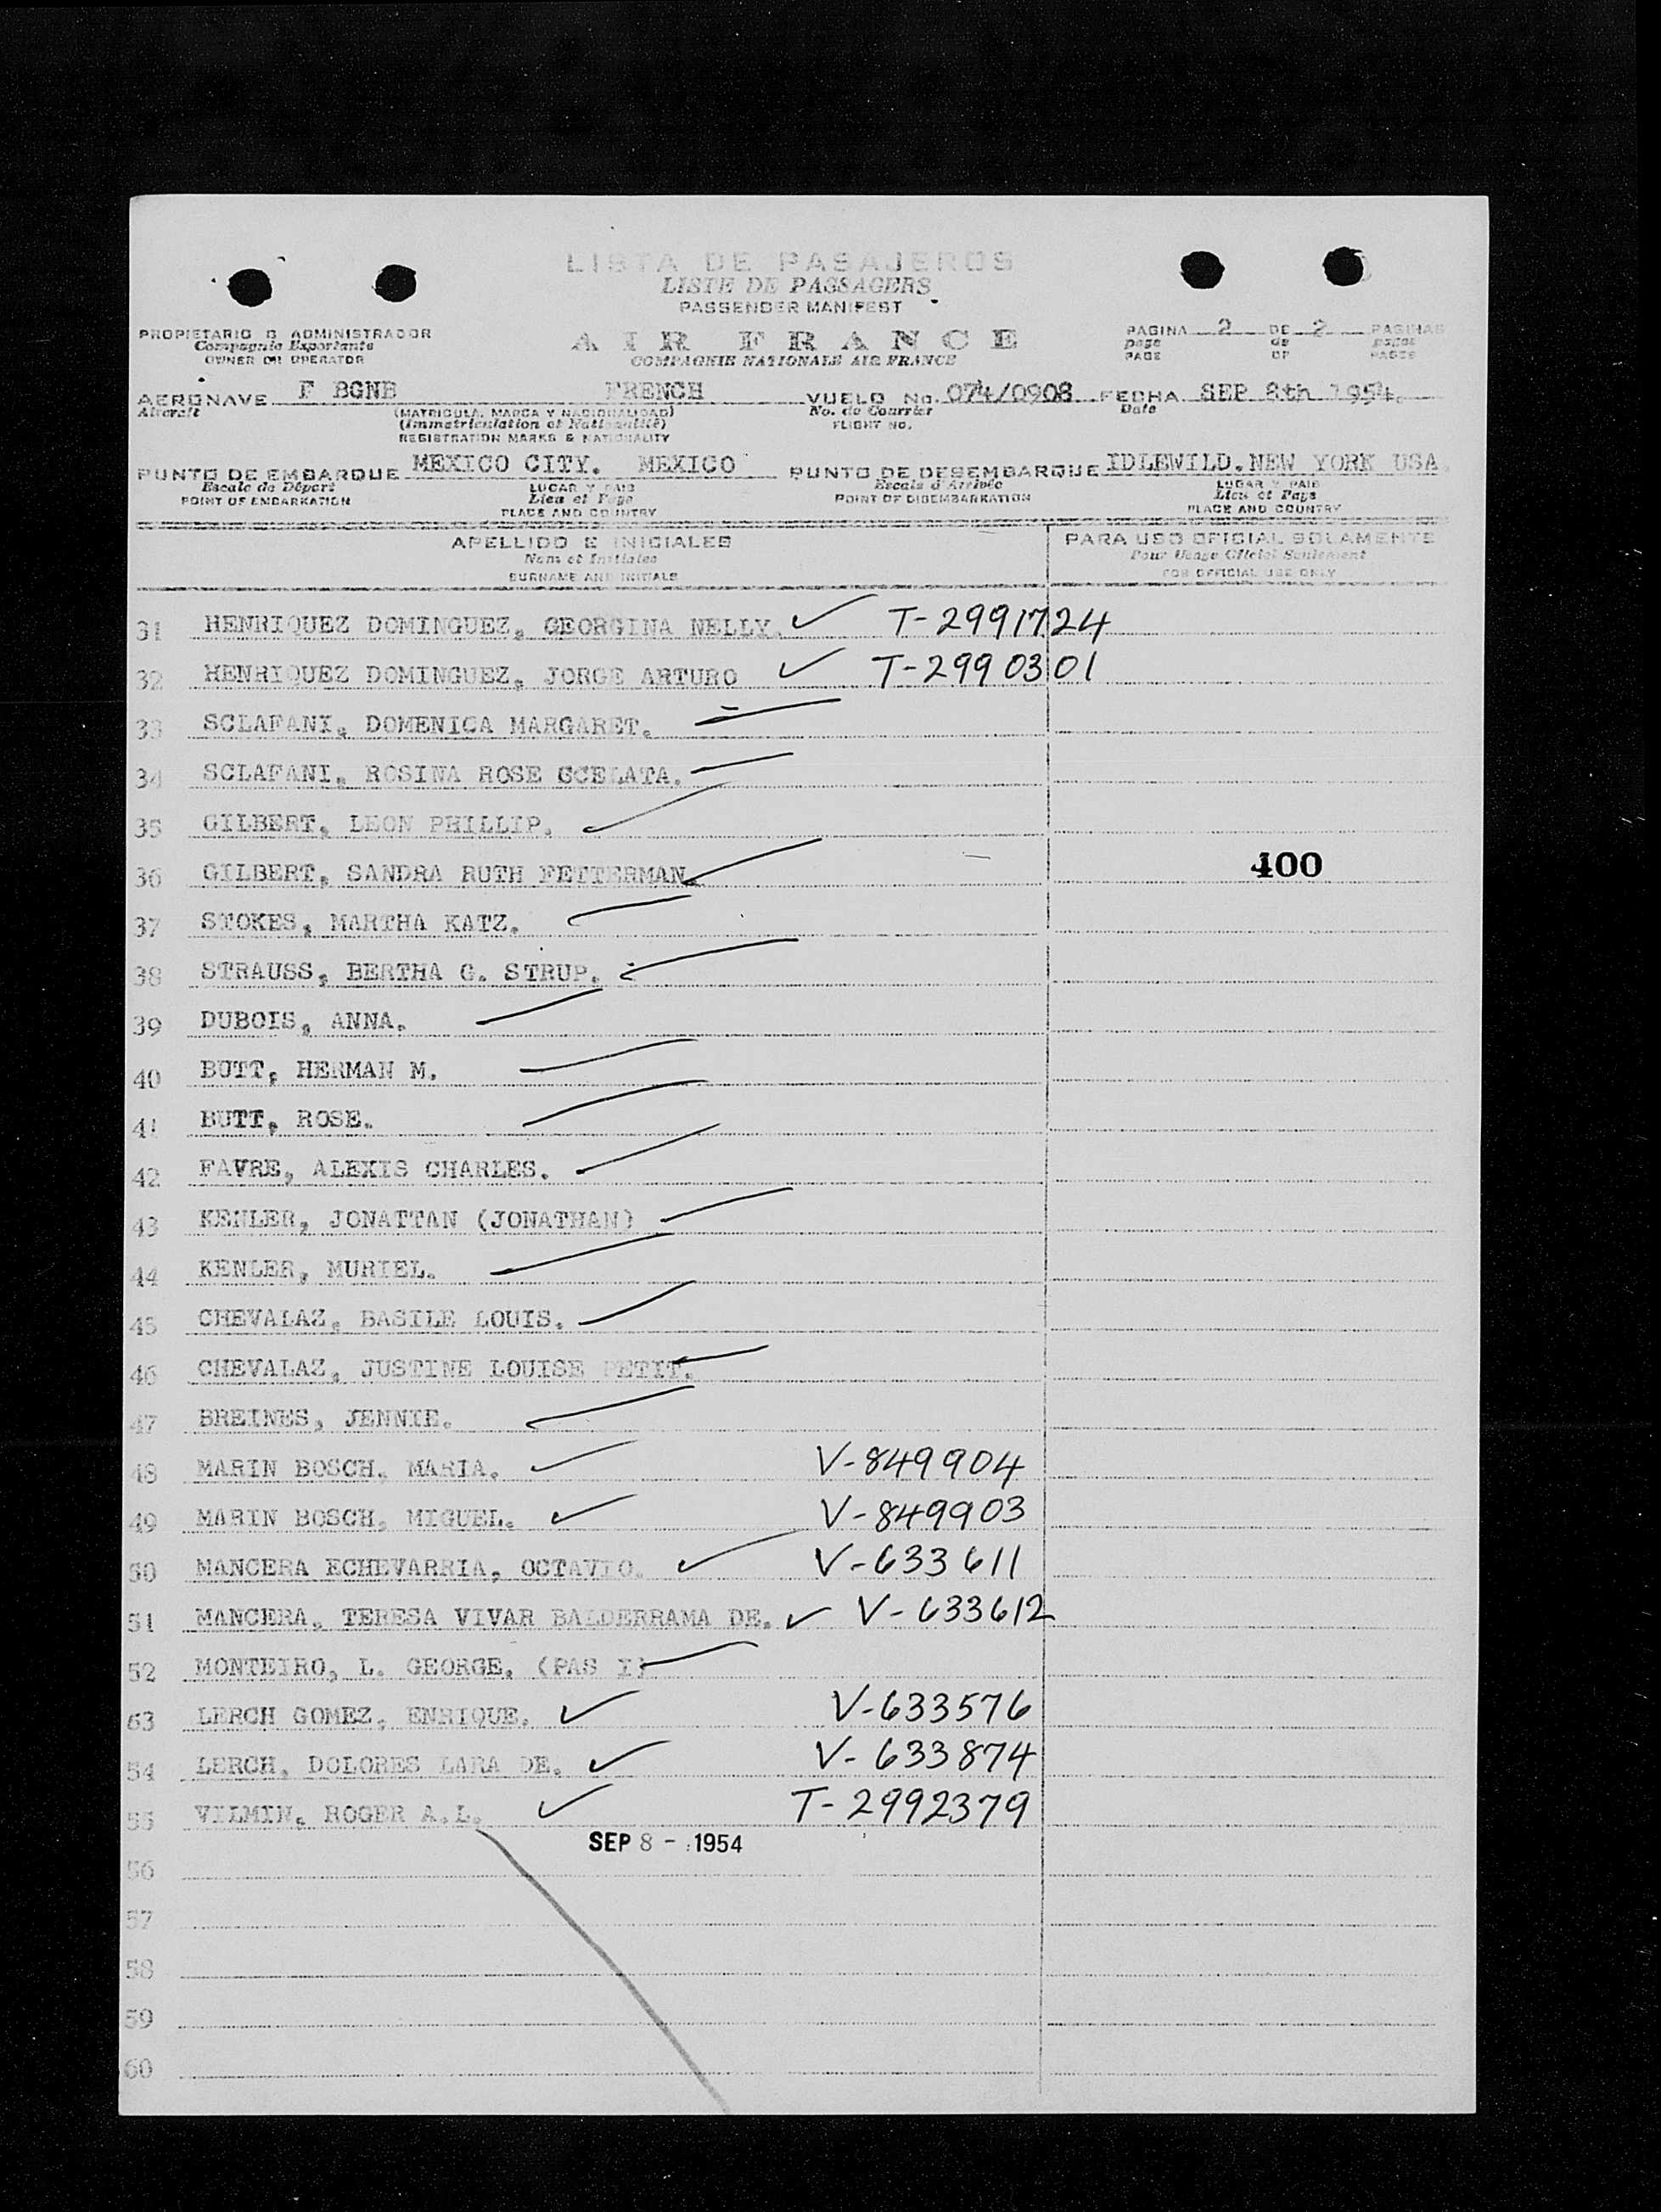 LISTA DE PASAJEROS
LISTE DE PASSAGERS
PASSENGER MANIFEST
PROPIETARIO O ADMINISTRADOR
Compagnie Exportante
OWNER OR OPERATOR
AIR FRANCE
COMPAGNIE NATIONALE AIR FRANCE
PAGINA 2 DE 2 PAGINAS
page de pages
PAGE OF PAGES
AERONAVE F BGNB FRENCH VUELO No. 074/0908 FECHA SEP 8th 1954.
Aircraft (MATRICULA, MARCA Y NACIONALIDAD) No. de Courrier Date
(Immatriculation et Nationalité) FLIGHT NO.
REGISTRATION MARKS & NATIONALITY
PUNTO DE EMBARQUE MEXICO CITY. MEXICO PUNTO DE DESEMBARQUE IDLEWILD. NEW YORK USA.
Escale de Départ LUGAR Y PAIS Escale d'Arrivée LUGAR Y PAIS
POINT OF EMBARKATION Lieu et Pays POINT OF DISEMBARKATION Lieu et Pays
PLACE AND COUNTRY PLACE AND COUNTRY
APELLIDO E INICIALES PARA USO OFICIAL SOLAMENTE
Nom et Initiales Pour Usage Officiel Seulement
SURNAME AND INITIALS FOR OFFICIAL USE ONLY
31 HENRIQUEZ DOMINGUEZ, GEORGINA NELLY. ✓ T-2991724
32 HENRIQUEZ DOMINGUEZ, JORGE ARTURO ✓ T-2990301
33 SCLAFANI, DOMENICA MARGARET.
34 SCLAFANI, ROSINA ROSE CCELATA.
35 GILBERT, LEON PHILLIP.
36 GILBERT, SANDRA RUTH FETTERMAN. 400
37 STOKES, MARTHA KATZ.
38 STRAUSS, BERTHA G. STRUP.
39 DUBOIS, ANNA.
40 BUTT, HERMAN M.
41 BUTT, ROSE.
42 FAVRE, ALEXIS CHARLES.
43 KENLER, JONATTAN (JONATHAN)
44 KENLER, MURIEL.
45 CHEVALAZ, BASILE LOUIS.
46 CHEVALAZ, JUSTINE LOUISE PETIT.
47 BREINES, JENNIE.
48 MARIN BOSCH, MARIA. ✓ V-849904
49 MARIN BOSCH, MIGUEL. ✓ V-849903
50 MANCERA ECHEVARRIA, OCTAVIO. ✓ V-633611
51 MANCERA, TERESA VIVAR BALDERRAMA DE. ✓ V-633612
52 MONTEIRO, L. GEORGE, (PAS I)
53 LERCH GOMEZ, ENRIQUE. ✓ V-633576
54 LERCH, DOLORES LARA DE. ✓ V-633874
55 VILMIN, ROGER A.L. ✓ T-2992379
SEP 8 - 1954
56
57
58
59
60